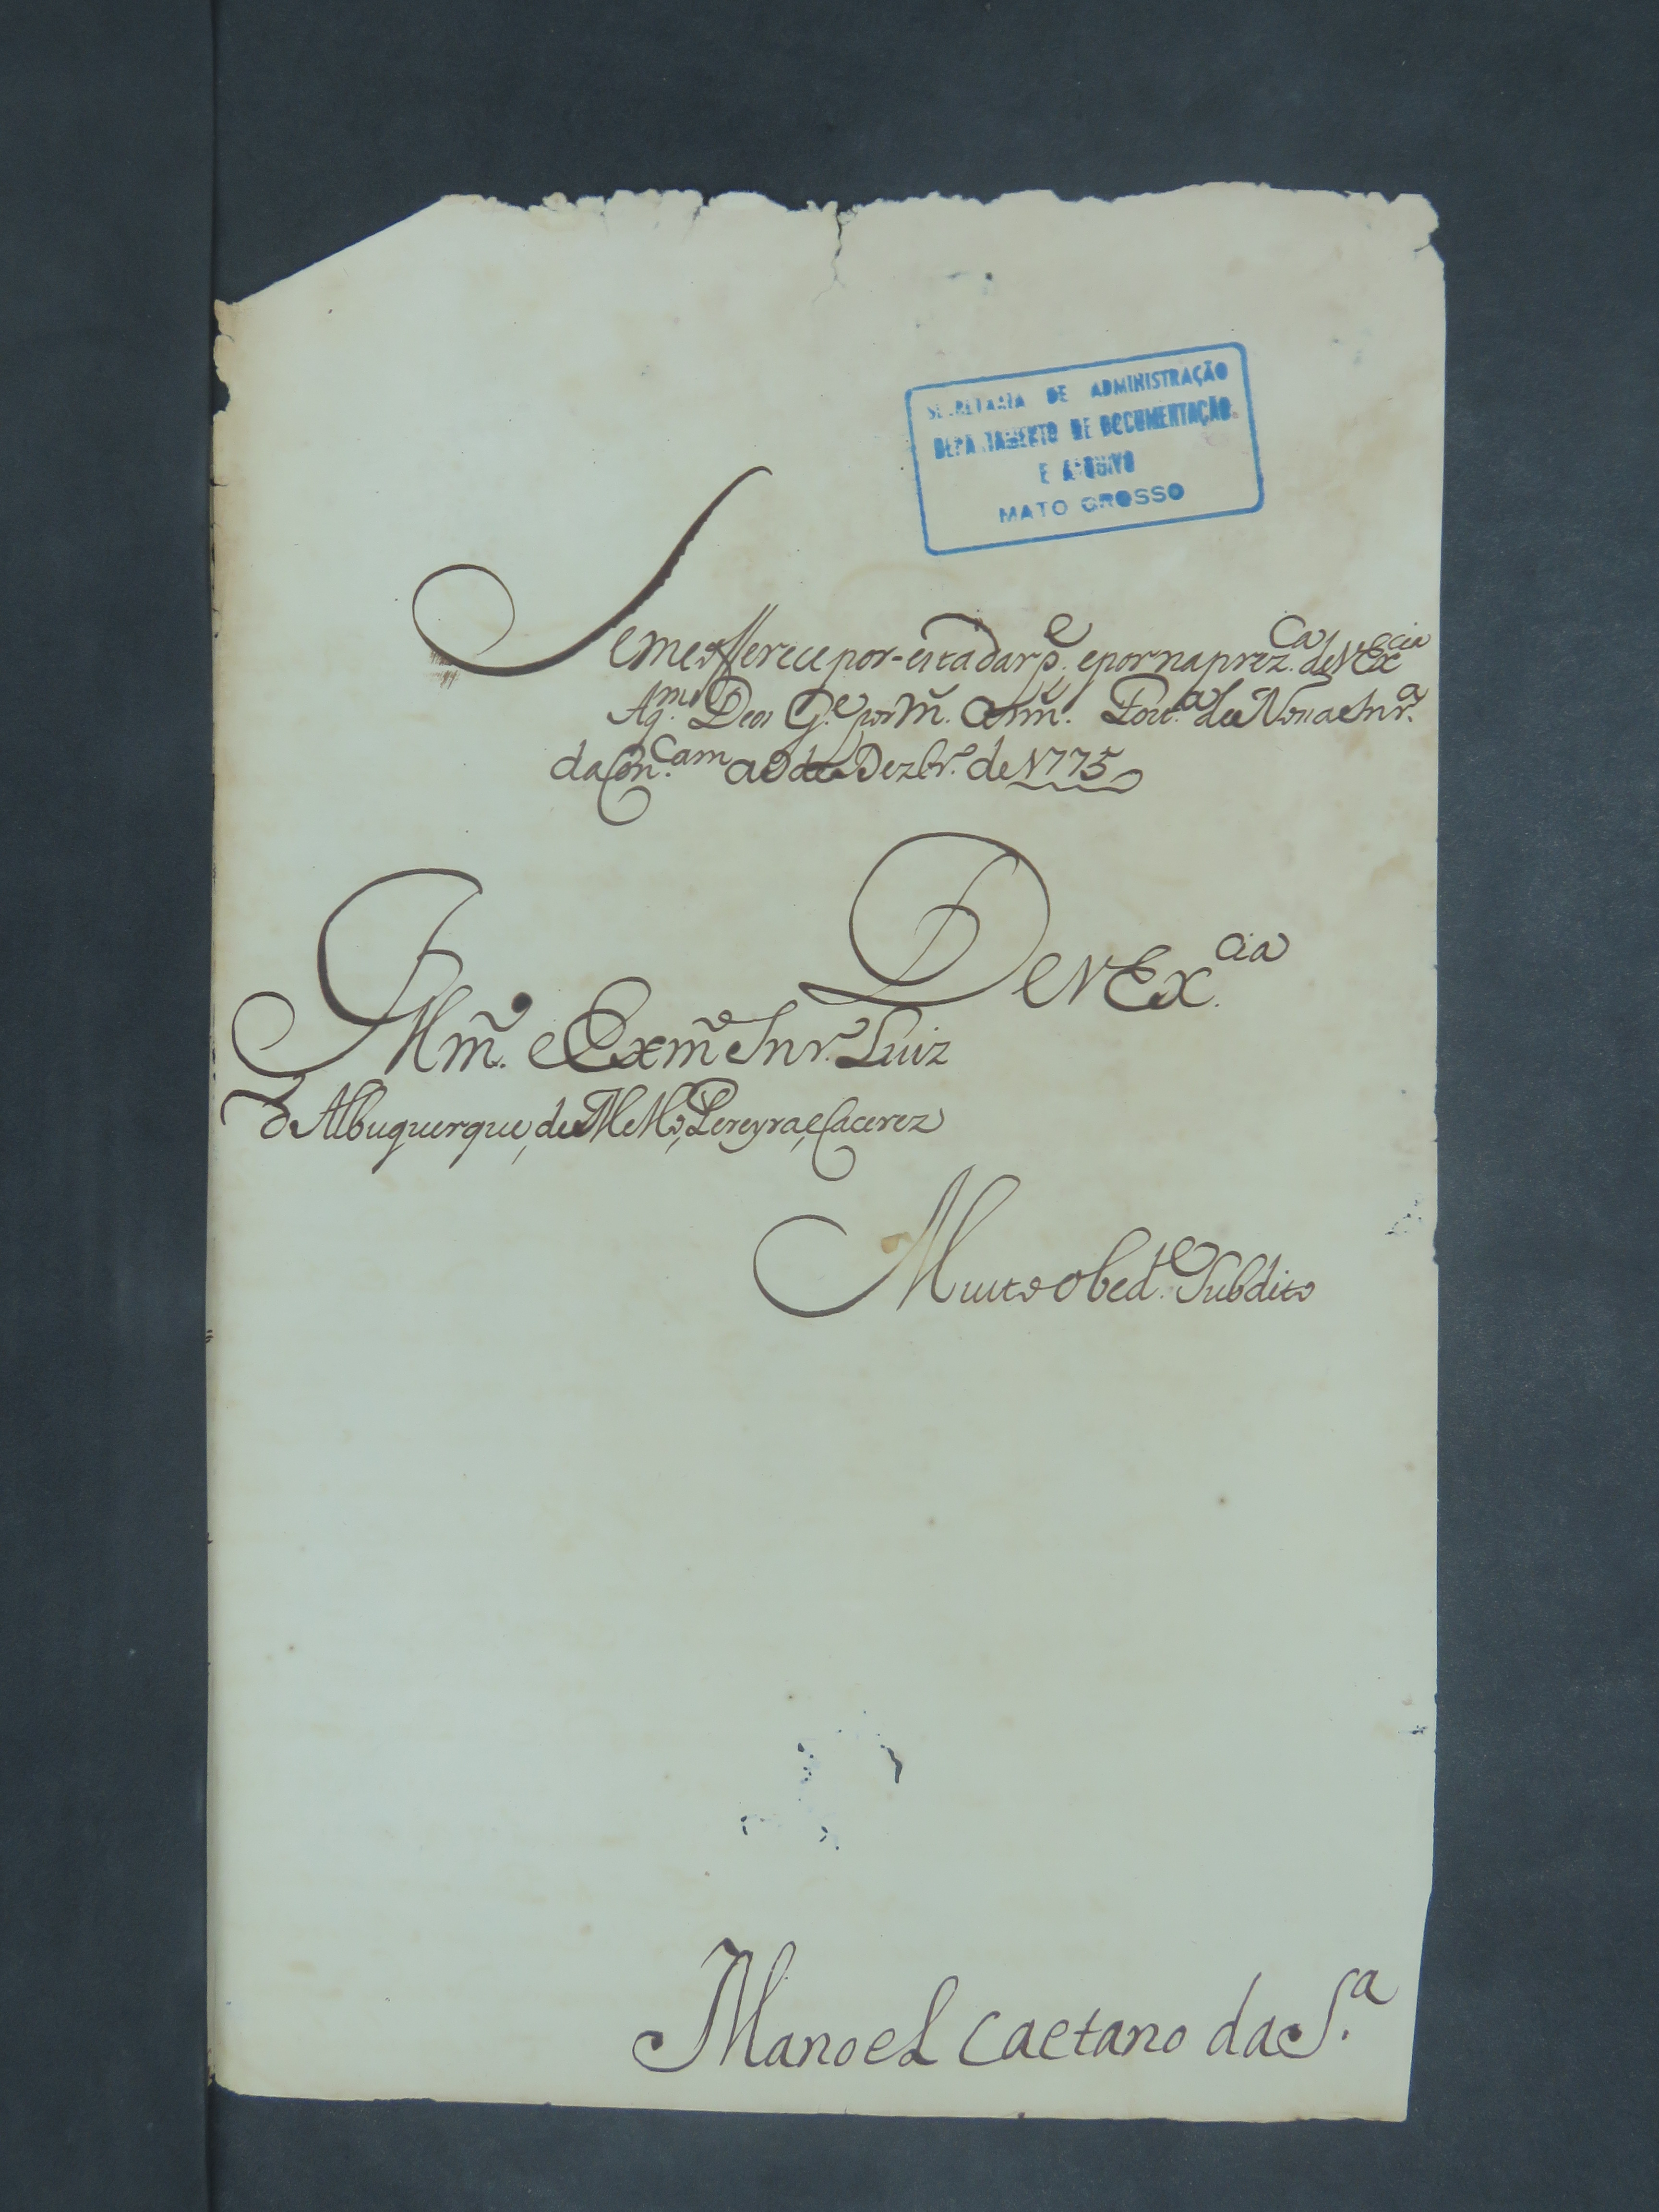 SECRETARIA DE ADMINISTRAÇÃO
DEPARTAMENTO DE DOCUMENTAÇÃO
E ARQUIVO
MATO GROSSO
Se me offerece por-esta dar p.e e por na prez.ca de V Ex.cia
Aq.m Deos G.e por m. ann. Fort.a de Nossa Snr.a
da Con.cam a 9 de Dezbr.o de 1775
De V Ex.cia
Illm.o e Exm.o Snr. Luiz
d Albuquerque, de M Mo, Pereyra, e Cacerez
Muito obed.e Subdito
Manoel Caetano da S.a